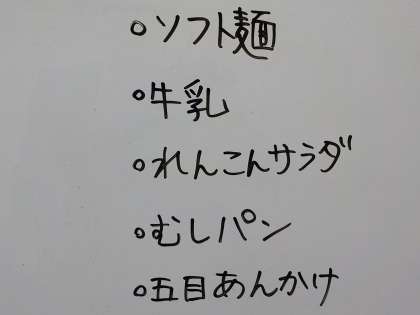 ○ソフト麺
○牛乳
○れんこんサラダ
○むしパン
○五目あんかけ